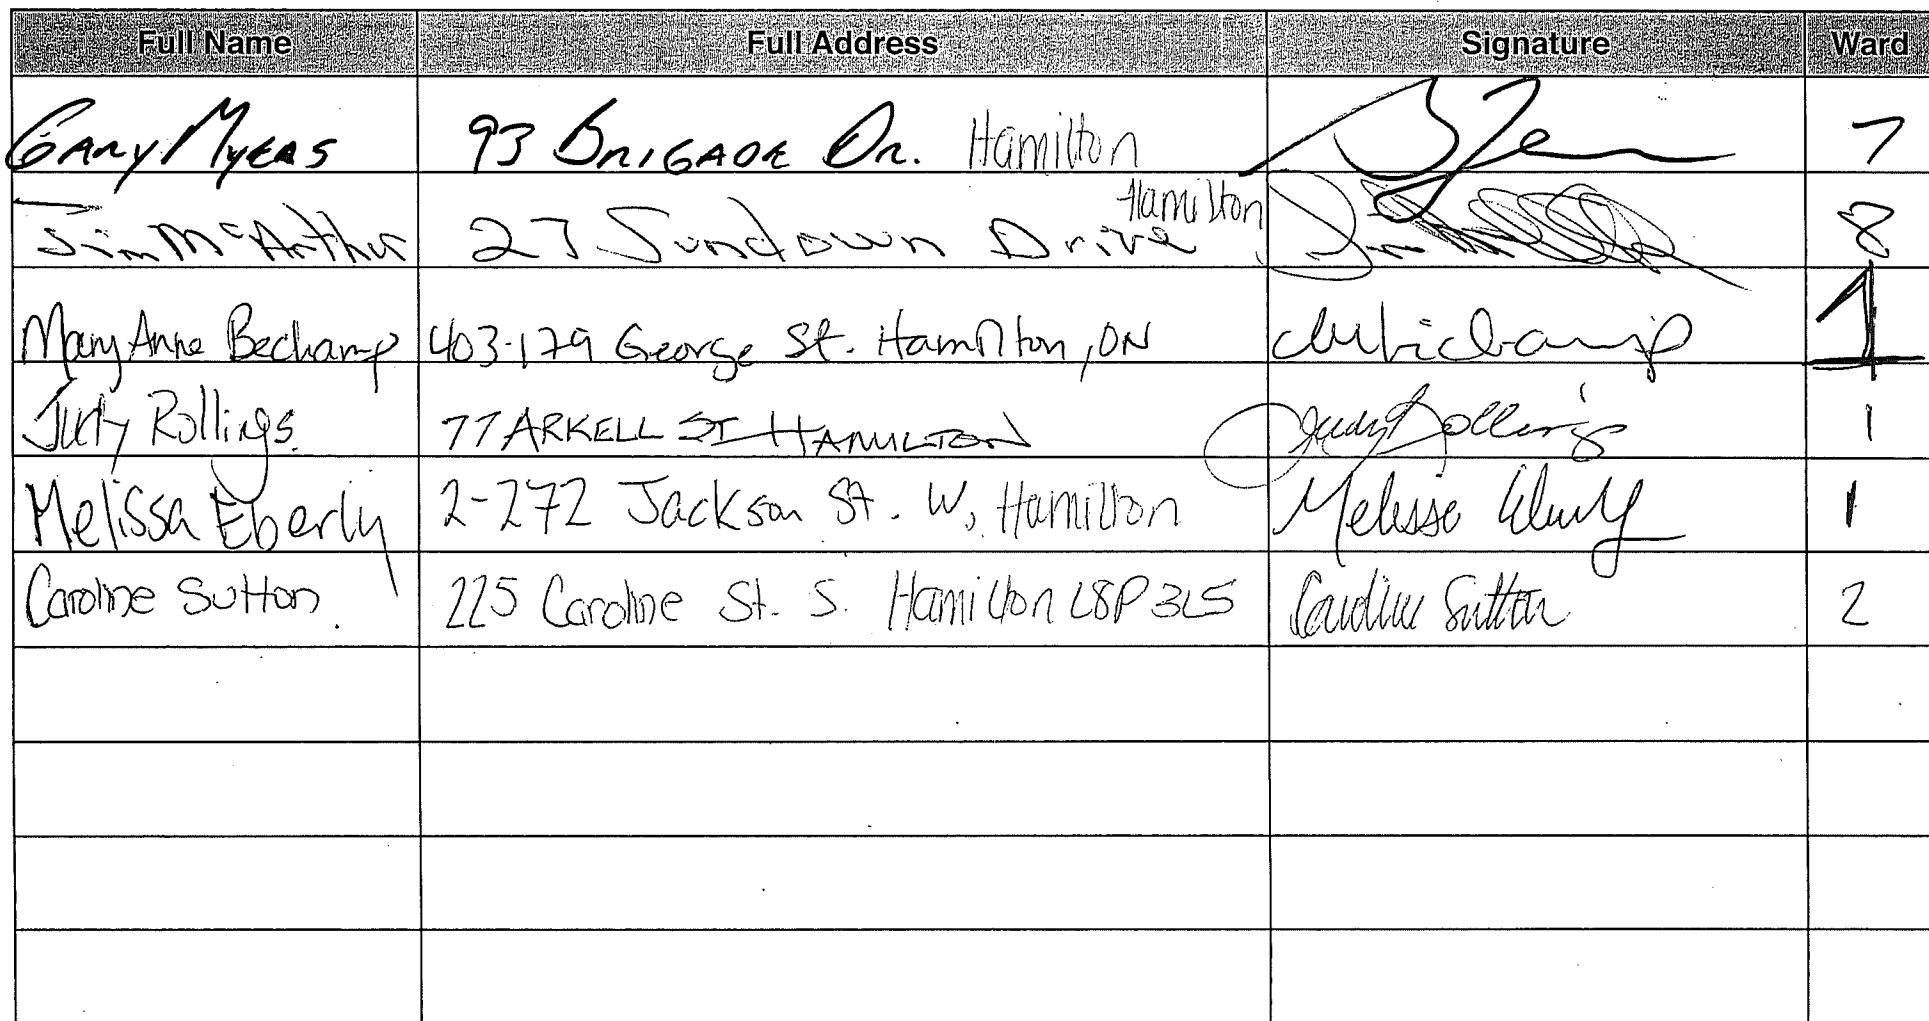 Full Name Full Address Signature Ward
Gary Myers 93 Brigade Dr. Hamilton 7
Hamilton
Jim McArthur 27 Sundown Drive 8
Mary Anne Bechamp 403-179 George St. Hamilton, ON 1
Judy Rollings. 77 ARKELL ST HAMILTON Judy Rollings 1
Melissa Eberly 2-272 Jackson St. W, Hamilton Melissa Eberly 1
Caroline Sutton. 225 Caroline St. S. Hamilton L8P 3L5 Caroline Sutton 2